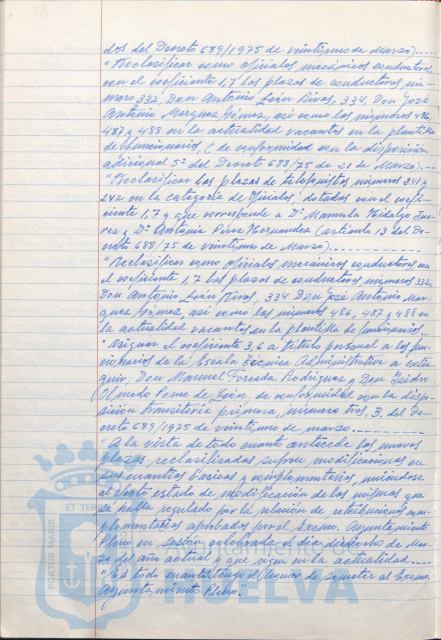 dos del Decreto 689/1975 de veintiuno de Marzo).
"Reclasificar como Oficiales mecánicos conductores,
con el coeficiente 1,7 las plazas de conductores nú-
mero 332, Don Antonio León Rivas, 334, Don José
Antonio Marquez Gómez, así como los números 486,
487 y 488 en la actualidad vacantes en la plantilla
de funcionarios (de conformidad con la disposición
adicional 5ª del Decreto 688/75 de 21 de Marzo).
"Reclasificar las plazas de telefonistas números 241 y
242 en la categoría de Oficiales, dotados con el coefi-
ciente 1,7 y que corresponde a Dª Manuela Hidalgo
y Dª Antonia Pérez Hernandez (artículo 13 del De-
creto 688/75 de veintiuno de Marzo).
"Reclasificar como oficiales mecánicos conductores con
el coeficiente 1,7 las plazas de conductores números 332,
Don Antonio León Rivas, 334 Don José Antonio Mar-
quez Gómez, así como los números 486, 487 y 488 en
la actualidad vacantes en la plantilla de funcionarios.
"Asignar el coeficiente 3,6 a título personal a los fun-
cionarios de la Escala Técnica Administrativa a extin-
guir, Don Manuel Forzada Rodriguez y Don Isidro
Olmedo Ponce de León, de conformidad con la dispo-
sición transitoria primera, número tres, 3. del De-
creto 689/1975 de veintiuno de marzo.
"A la vista de todo cuanto antecede las nuevas
plazas reclasificadas sufren modificaciones en
sus cuantías básicas y complementarias, uniéndose
al efecto estado de modificación de las mismas que
se halla regulado por la relación de retribuciones com-
plementarias aprobadas por el Excmo. Ayuntamiento
Pleno en sesión celebrada el día dieciocho de Mar-
zo del año actual y que rigen en la actualidad.
"Es todo cuanto tengo el honor de someter al Excmo.
Ayuntamiento Pleno".
PORTUS MARIS
ET TERRAE
Ayuntamiento de
HUELVA